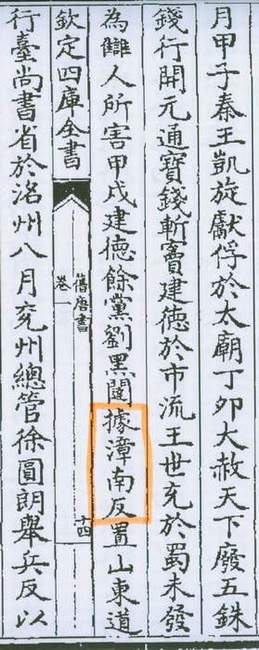 月甲子秦王凱旋獻俘於太廟丁夘大赦天下廢五銖
錢行開元通寳錢斬竇建徳於市流王世充於蜀未發
為讎人所害甲戌建徳餘黨劉黒闥據漳南反置山東道
欽定四庫全書
舊唐書
卷一
十四
行臺尚書省於洺州八月兖州總管徐圓朗舉兵反以